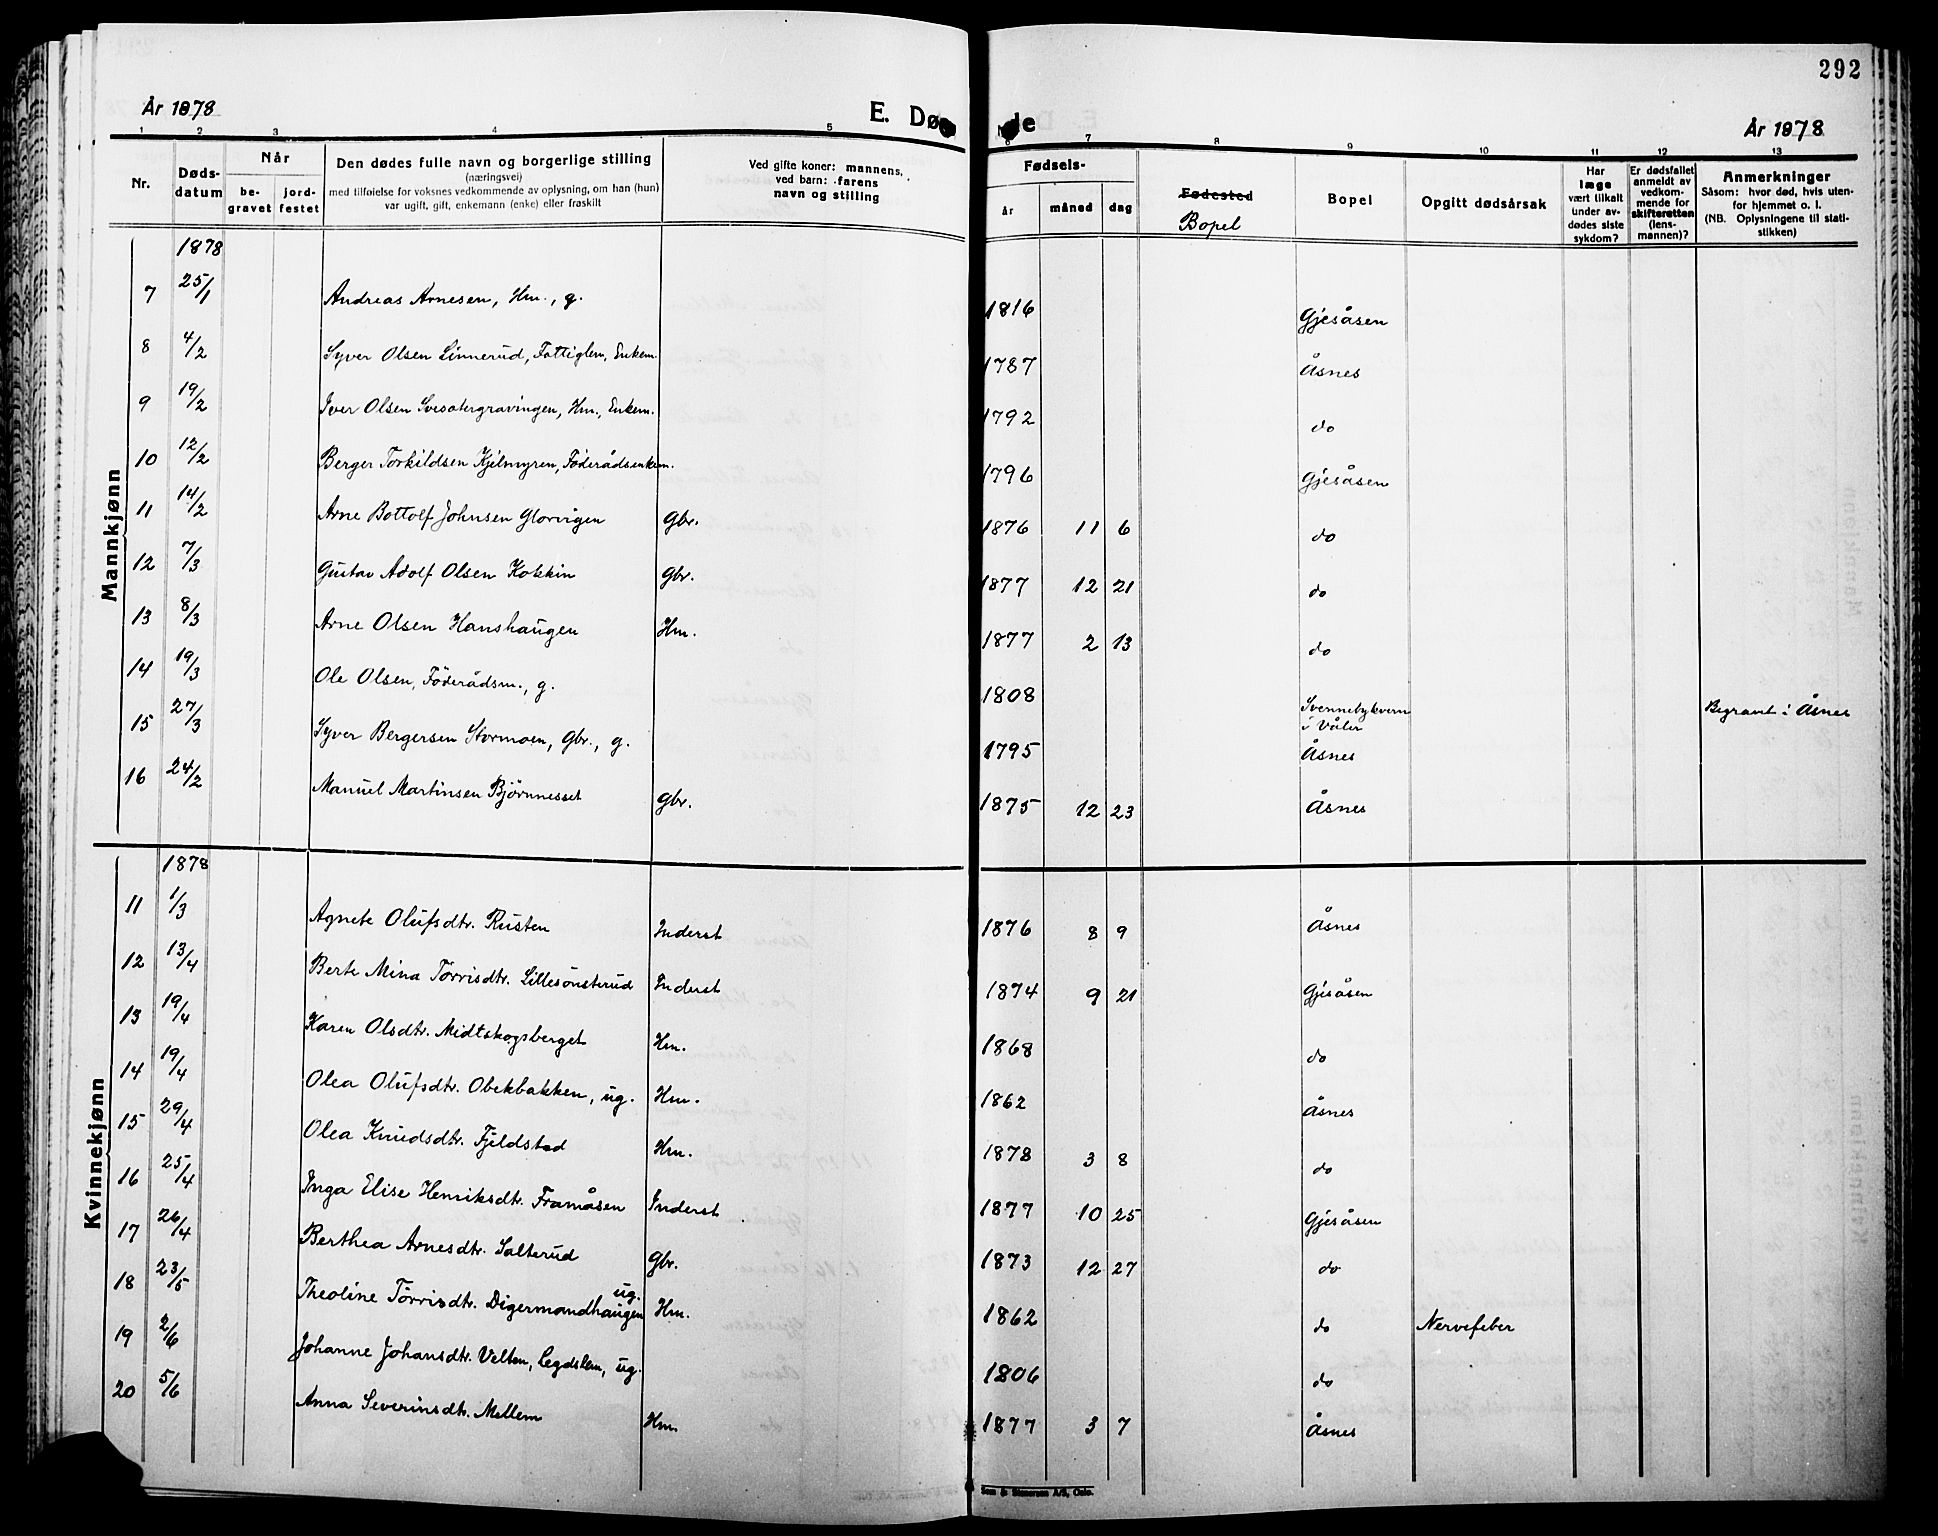 292
År 1878
E. Døde
År 1878
1 2 3 4 5 6 7 8 9 10 11 12 13
Nr.
Døds-
datum
Når
be-
gravet
jord-
festet
Den dødes fulle navn og borgerlige stilling
(næringsvei)
med tilføielse for voksnes vedkommende av oplysning, om han (hun)
var ugift, gift, enkemann (enke) eller fraskilt
Ved gifte koner: mannens,
ved barn: farens
navn og stilling
Fødsels-
år måned dag
Fødested
Bopel
Bopel
Opgitt dødsårsak
Har
læge
vært tilkalt
under av-
dødes siste
sykdom?
Er dødsfallet
anmeldt av
vedkom-
mende for
skifteretten
(lens-
mannen)?
Anmerkninger
Såsom: hvor død, hvis uten-
for hjemmet o. l.
(NB. Oplysningene til stati-
stikken)
Mannkjønn
1878
7 25/1 Andreas Arnesen, Hm., g. 1816 Gjesåsen
8 4/2 Syver Olsen Linnerud, Fattiglem, Enkem. 1787 Åsnes
9 19/2 Iver Olsen Svesætergravingen, Hm., Enkem. 1792 do
10 12/2 Berger Torkildsen Kjelmyren, Föderådsenkem. 1796 Gjesåsen
11 14/2 Arne Bottolf Johnsen Glorvigen Gbr. 1876 11 6 do
12 7/3 Gustav Adolf Olsen Kokkin Gbr. 1877 12 21 do
13 8/3 Arne Olsen Hanshaugen Hm. 1877 2 13 do
14 19/3 Ole Olsen, Föderådsm., g. 1808 Svennebykvern
i Våler Begravet i Åsnes
15 27/3 Syver Bergersen Stormoen, Gbr., g. 1795 Åsnes
16 24/2 Manuel Martinsen Björnnesset Gbr. 1875 12 23 Åsnes
Kvinnekjønn
1878
11 1/3 Agnete Olufsdtr. Rusten Inderst 1876 8 9 Åsnes
12 13/4 Berte Mina Törrisdtr. Lillesönsterud Inderst 1874 9 21 Gjesåsen
13 19/4 Karen Olsdtr. Midtskogsberget Hm. 1868 do
14 19/4 Olea Olufsdtr. Obekbakken, ug. Hm. 1862 Åsnes
15 29/4 Olea Knudsdtr. Fjeldstad Hm. 1878 3 8 do
16 25/4 Inga Elise Henriksdtr. Framåsen Inderst 1877 10 25 Gjesåsen
17 26/4 Berthea Arnesdtr. Salterud Gbr. 1873 12 27 do
18 23/5 Theoline Törrisdtr. Digermandhaugen ug. Hm. 1862 do Nervefeber
19 2/6 Johanne Johansdtr. Velten, Legdslem, ug. 1806 do
20 5/6 Anna Severinsdtr. Mellem Hm. 1877 3 7 Åsnes